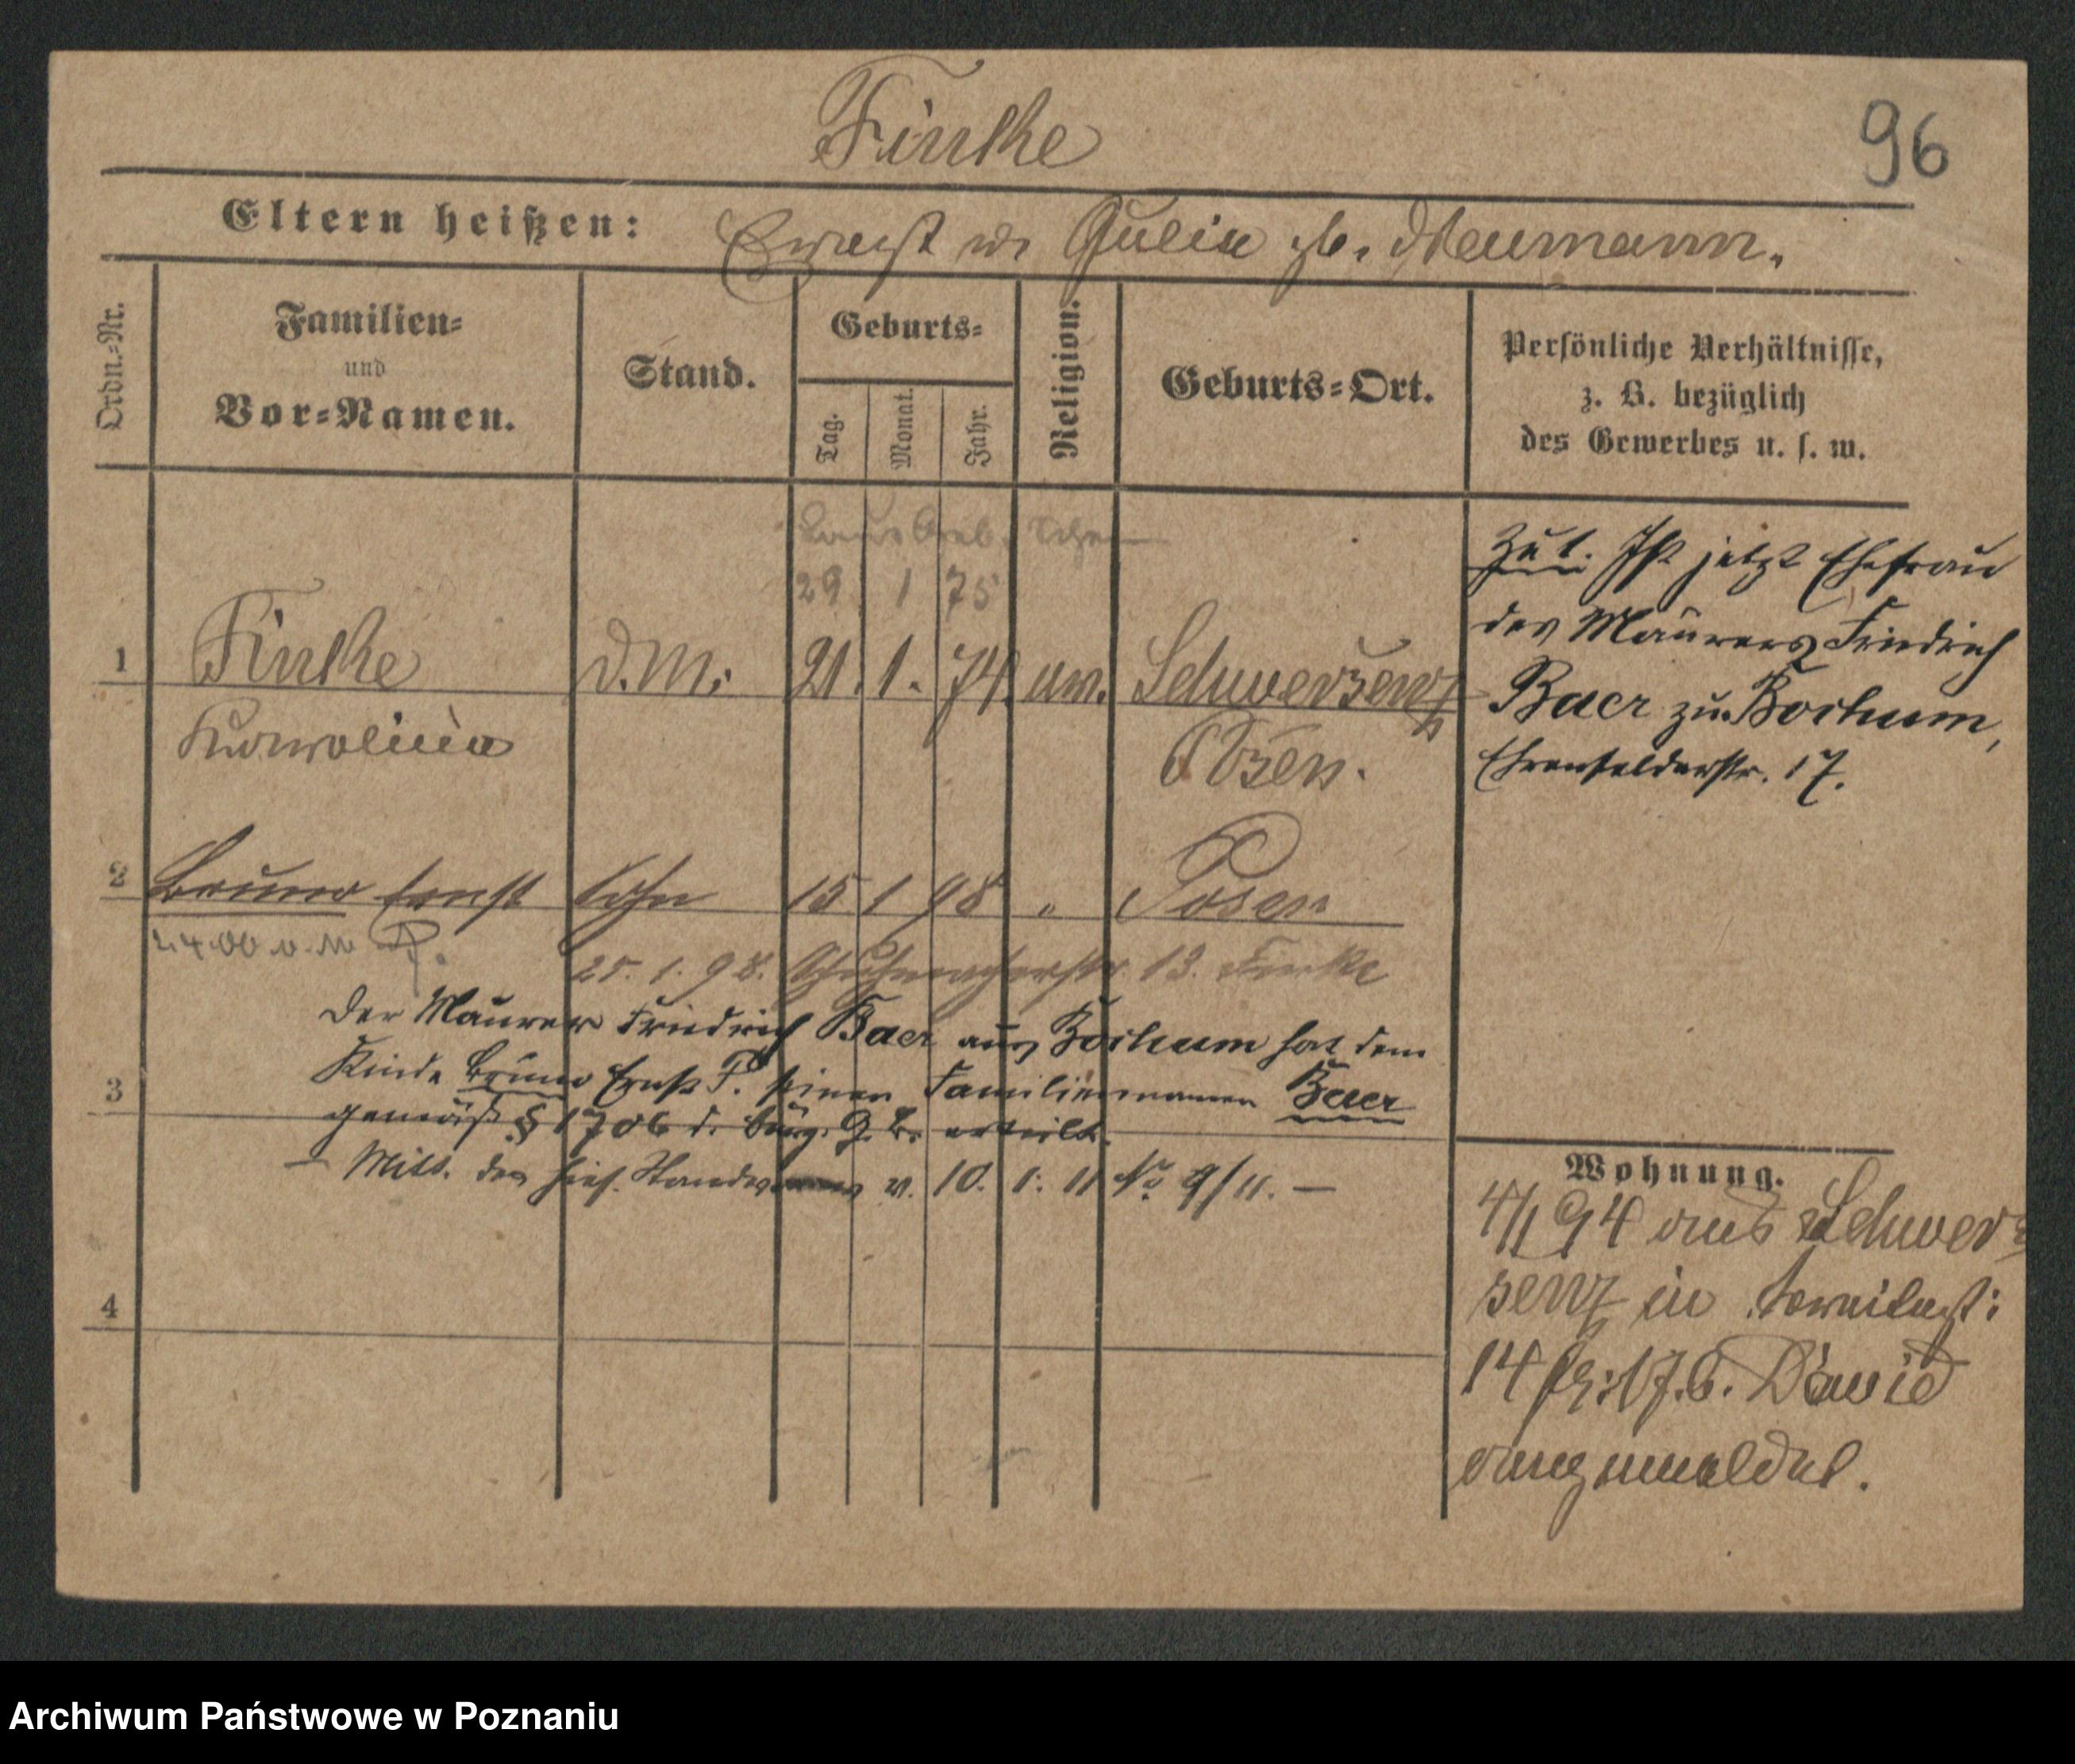 Finke
96
Eltern heißen: Ernst u. Julie geb. Neumann.
Ordn.=Nr.
Familien=
und
Vor=Namen.
Stand.
Geburts=
Tag.
Monat.
Jahr.
Religion.
Geburts=Ort.
Persönliche Verhältnisse,
z. B. bezüglich
des Gewerbes u. s. w.
Laut Geb. Schein
29 1 75
1 Finke D.M. 21. 1. 74. ev. Schwersenz
Karoline Posen.
Zu 1. Ist jetzt Ehefrau
des Maurers Friedrich
Baer zu Bochum,
Ehrenfelderstr. 17.
2 Bruno Ernst Sohn 15 1 98 " Posen
25. 1. 98. Schuhmacherstr. 13. Finke
Der Maurer Friedrich Baer aus Bochum hat dem
3 Kinde Bruno Ernst F. seinen Familiennamen Baer
gemäß § 1706 d. bürg. G. B. erteilt.
— Mitt. des hies. Standesamts v. 10. 1. 11 No 9/11. —
4
Wohnung.
4/1 94 aus Schwer=
senz in
14 David
angemeldet.
Archiwum Państwowe w Poznaniu